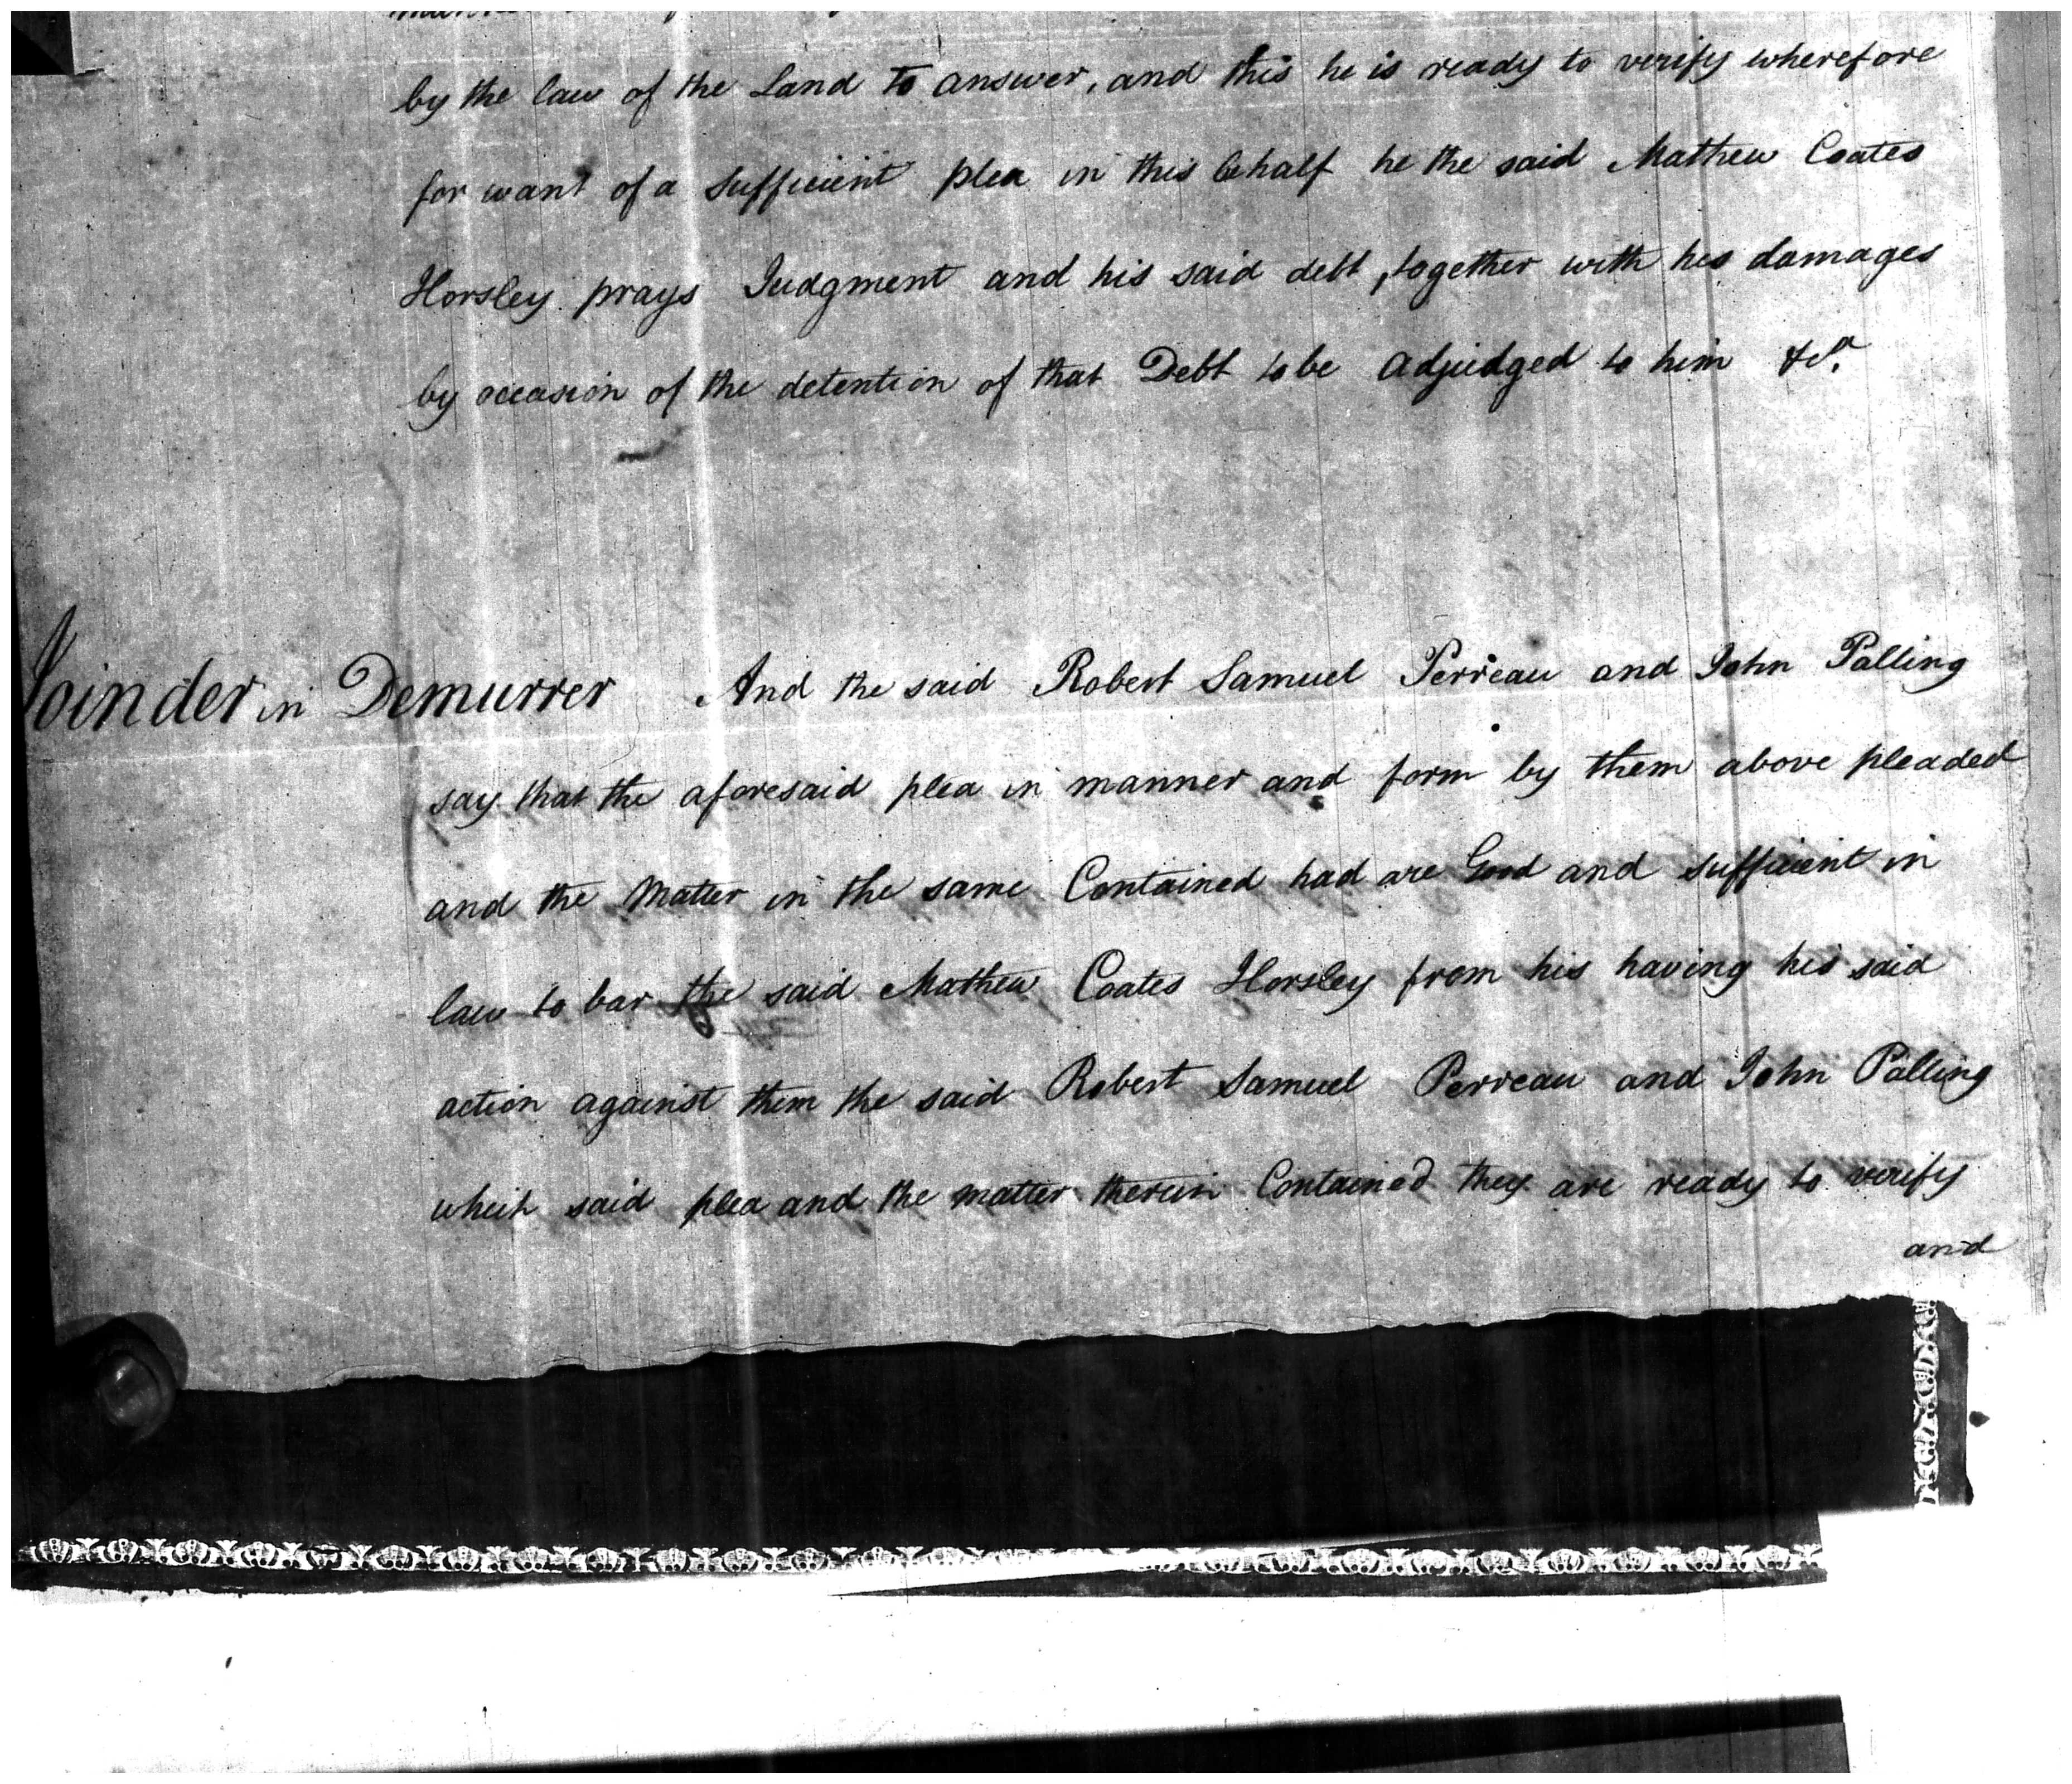 by the law of the Land to answer, and this he is ready to verify wherefore
for want of a sufficient plea in this behalf he the said Mathew Coates
Horsley prays Judgment and his said debt, together with his damages
by occasion of the detention of that Debt to be adjudged to him &ca.
Joinder in Demurrer And the said Robert Samuel Perreau and John Palling
say that the aforesaid plea in manner and form by them above pleaded
and the Matter in the same Contained had are Good and sufficient in
law to bar the said Mathew Coates Horsley from his having his said
action against them the said Robert Samuel Perreau and John Palling
which said plea and the matter therein Contained they are ready to verify
and